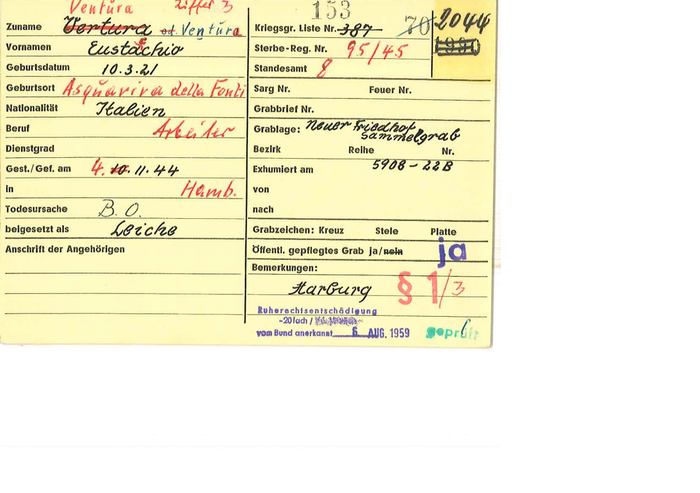 Ventura Ziffer 3
Zuname Vertura od. Ventura
Vornamen Eustachio
Geburtsdatum 10.3.21
Geburtsort Asquaviva della Fonti
Nationalität Italien
Beruf Arbeiter
Dienstgrad
Gest./Gef. am 4. 10. 11. 44
in Hamb.
Todesursache B.O.
beigesetzt als Leiche
Anschrift der Angehörigen
153
Kriegsgr. Liste Nr. 387 70 2044
Sterbe-Reg. Nr. 95/45
Standesamt 8
Sarg Nr. Feuer Nr.
Grabbrief Nr.
Grablage: Neuer Friedhof
Sammelgrab
Bezirk Reihe Nr.
5908 - 22B
Exhumiert am
von
nach
Grabzeichen: Kreuz Stele Platte
Öffentl. gepflegtes Grab ja/nein ja
Bemerkungen:
Harburg § 1/3
Ruherechtsentschädigung
-20fach /
vom Bund anerkannt 6. AUG. 1959 geprüft